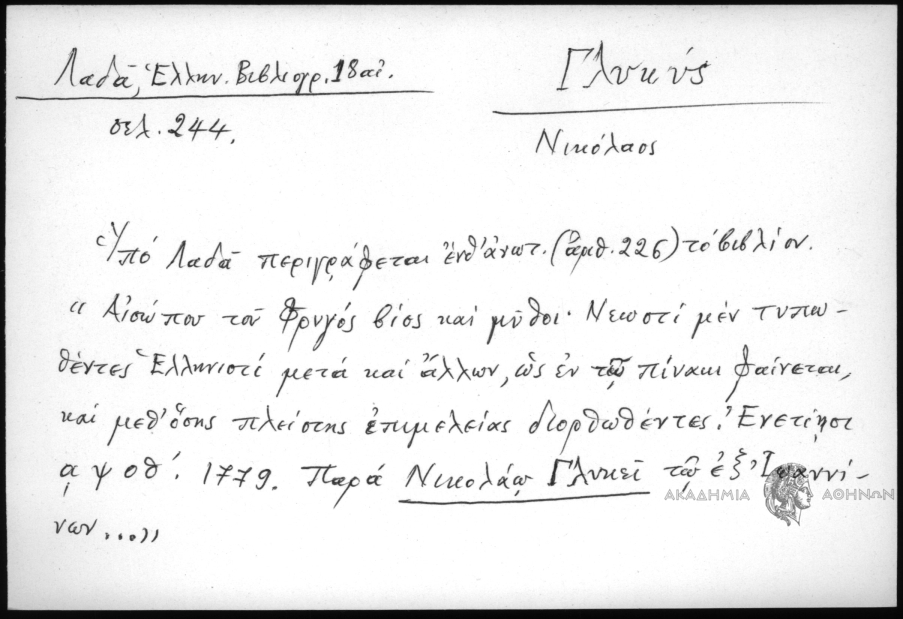 Λαδᾶ, Ἑλλην. Βιβλιογρ. 18 αἰ.
σελ. 244.
Γλυκύς
Νικόλαος
Ὑπό Λαδᾶ περιγράφεται ἐνθ' ἀνωτ. (ἀριθ. 226) τό βιβλίον.
“ Αἰσώπου τοῦ Φρυγός βίος καί μῦθοι· Νεωστί μέν τυπω-
θέντες Ἑλληνιστί μετά καί ἄλλων, ὡς ἐν τῷ πίνακι φαίνεται,
καί μεθ' ὅσης πλείστης ἐπιμελείας διορθωθέντες. Ἐνετίῃσι
͵αψοθ´. 1779. Παρά Νικολάῳ Γλυκεῖ τῷ ἐξ Ἰωαννί-
νων...»
ΑΚΑΔΗΜΙΑ ΑΘΗΝΩΝ